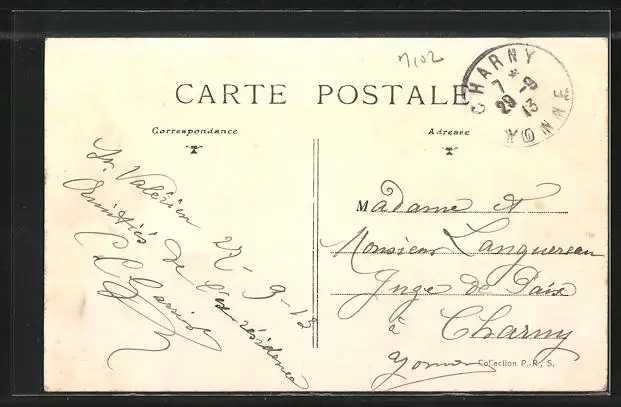 M102
CARTE POSTALE
CHARNY
7 * -9
29 13
YONNE
Correspondance
Adresse
St Valérien 27-9-13
Amitiés de
Madame et
Monsieur Languereau
Juge de Paix
à
Charny
Yonne
Collection P.-R., S.